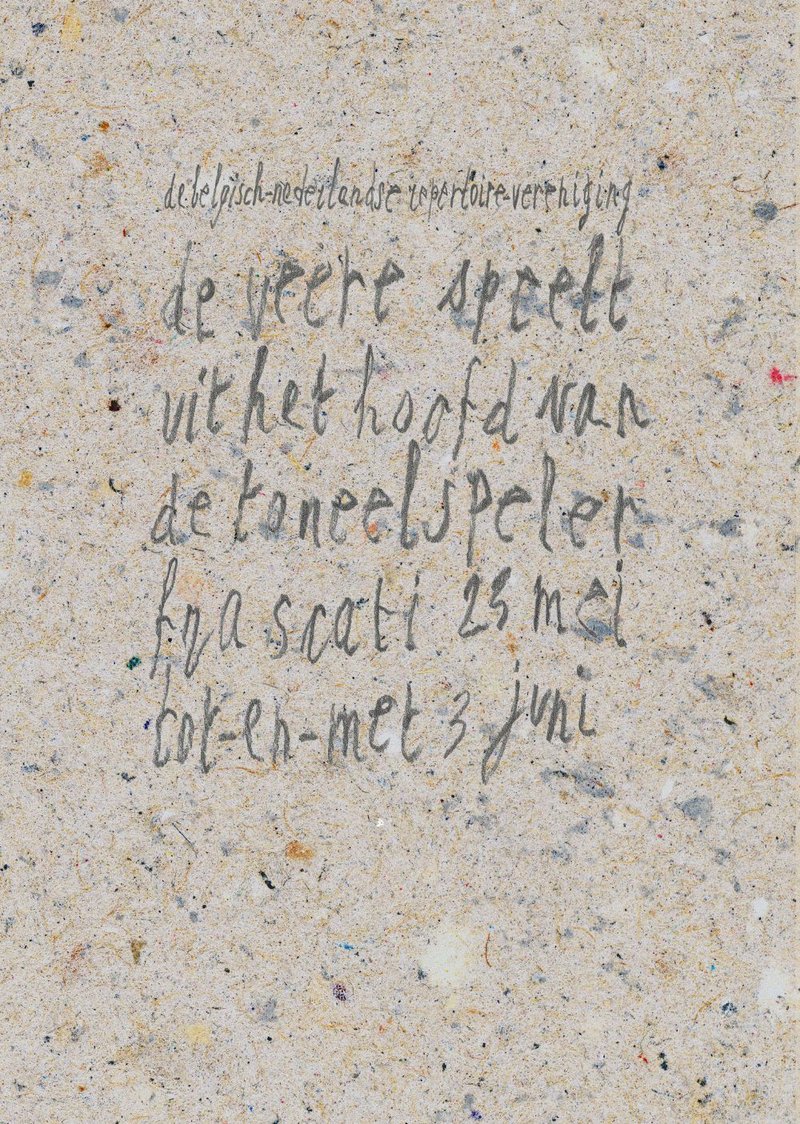 de belgisch-nederlandse repertoire-vereniging
de veere speelt
uit het hoofd van
de toneelspeler
frascati 23 mei
tot-en-met 3 juni